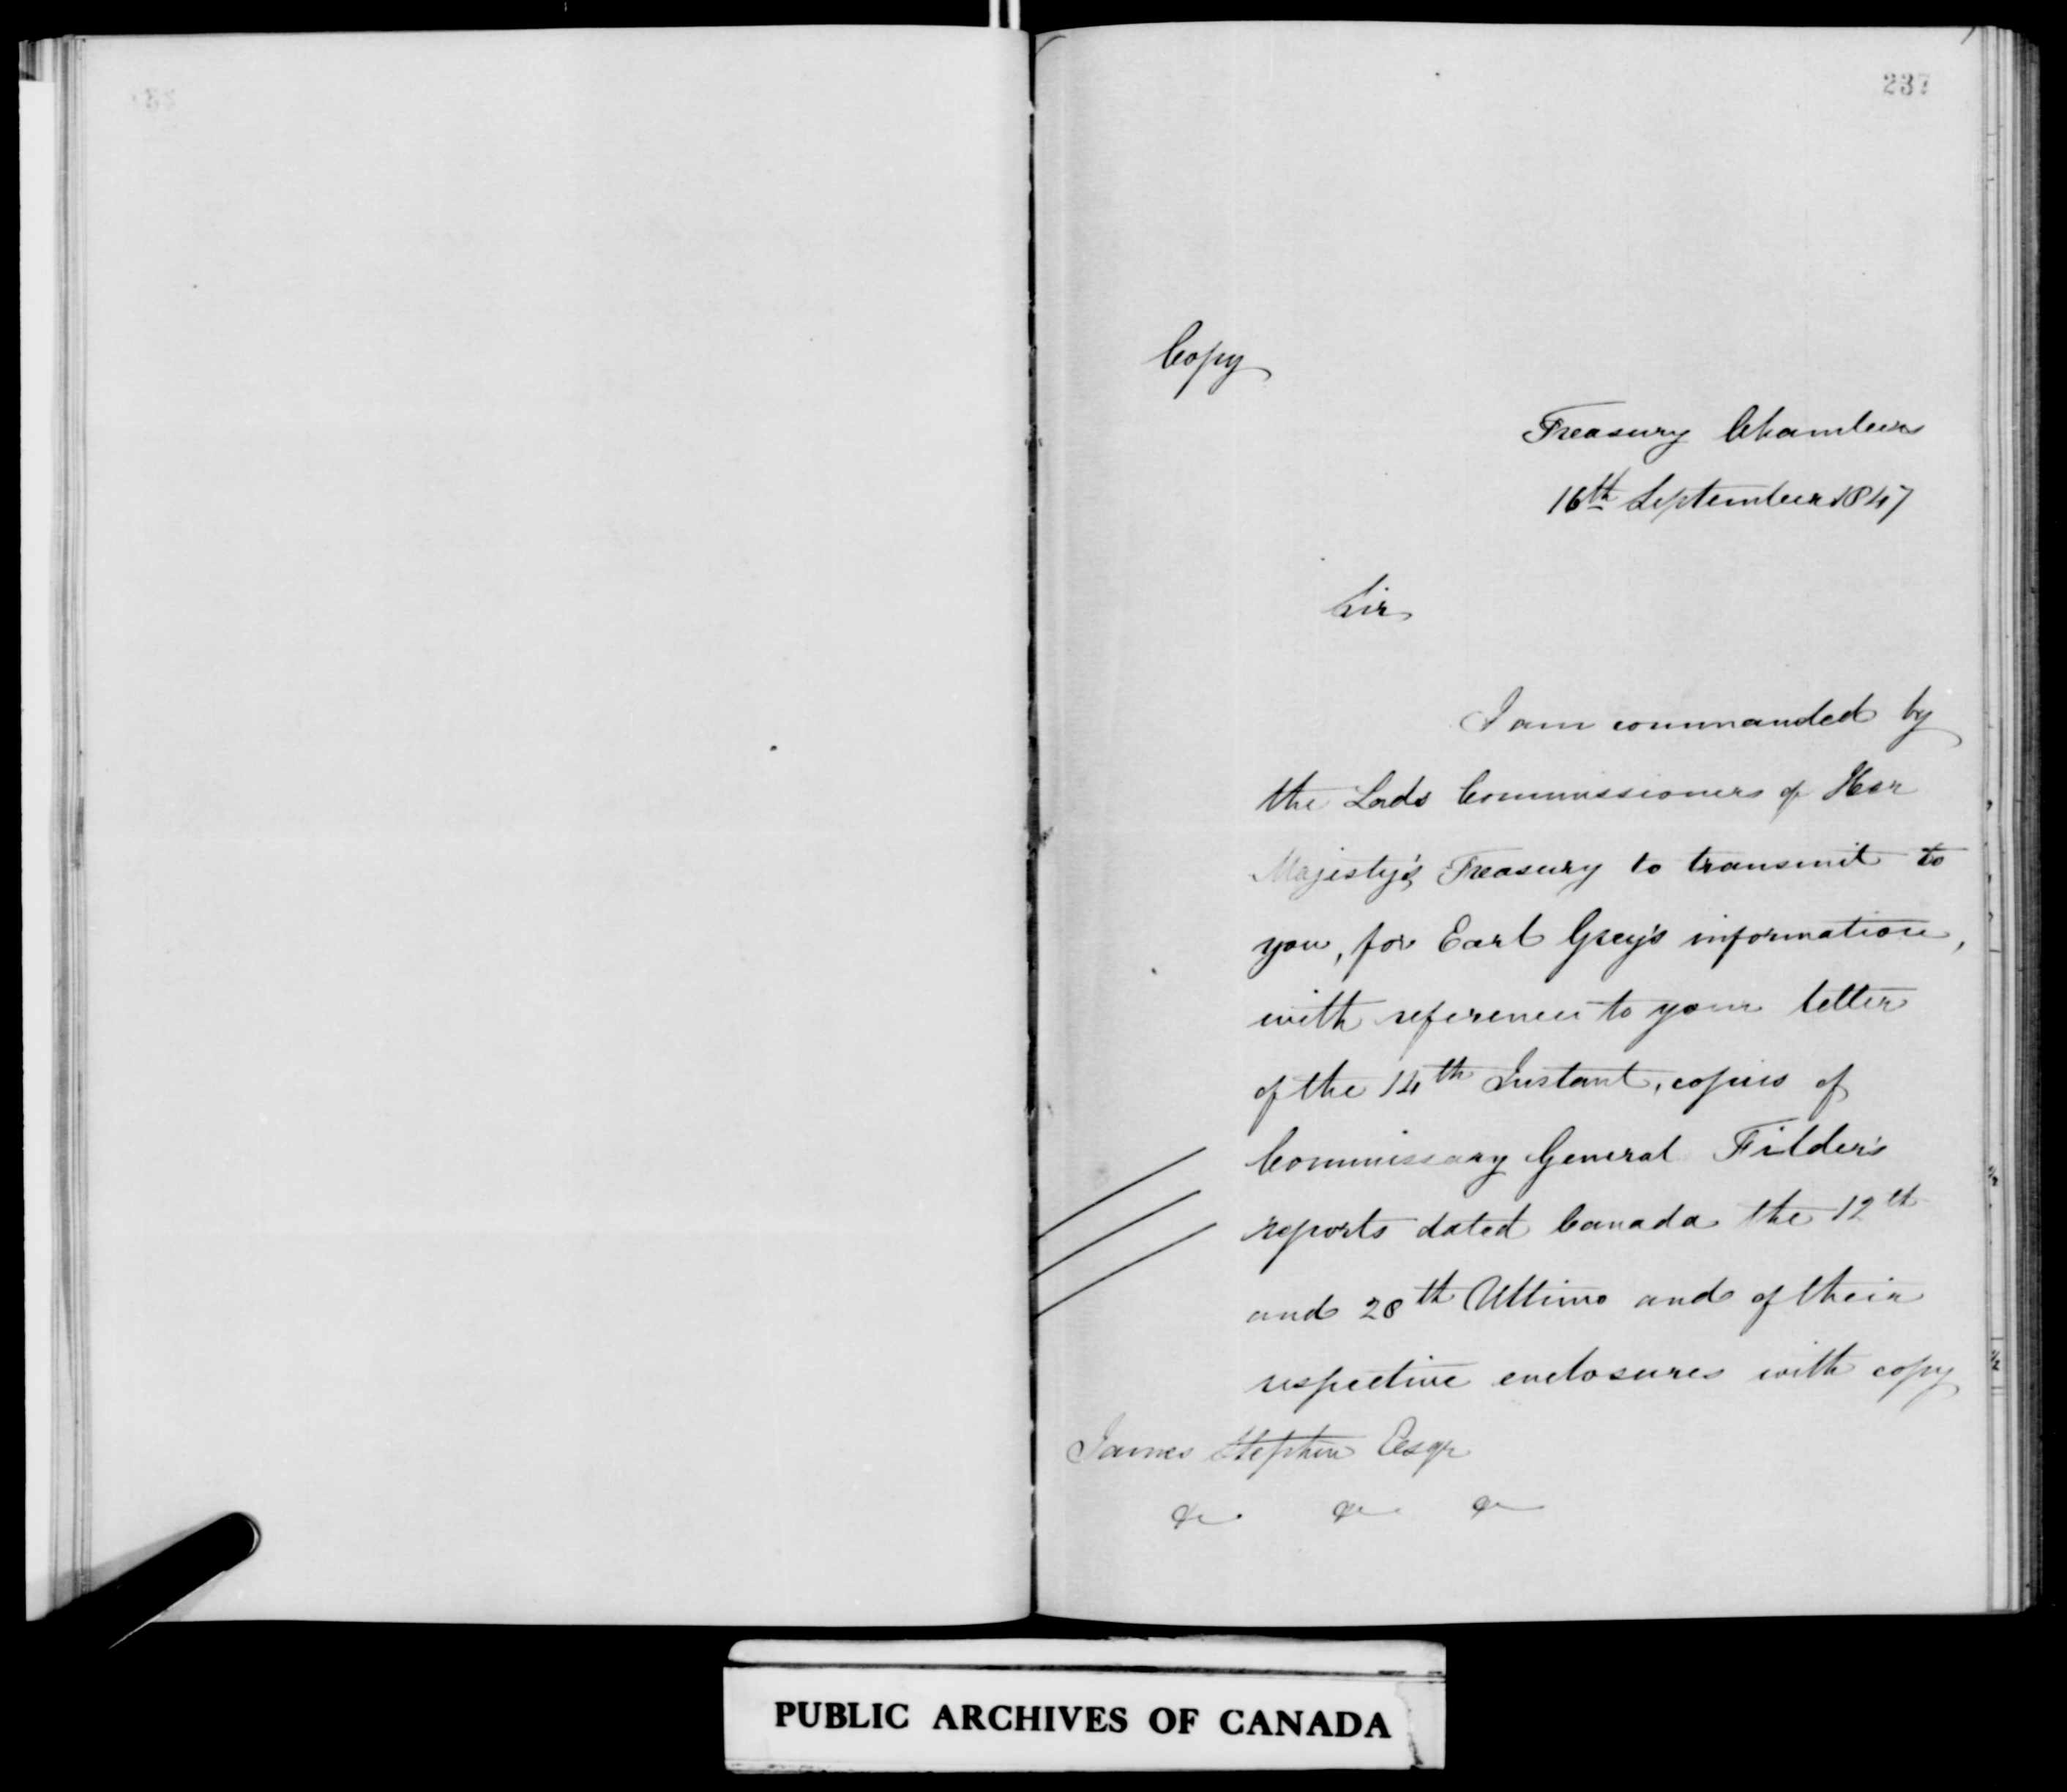 237
Copy
Treasury Chambers
16th September 1847
Sir
I am commanded by
the Lords Commissioners of Her
Majesty's Treasury to transmit to
you, for Earl Grey's information,
with reference to your letter
of the 14th Instant, copies of
Commissary General Filder's
reports dated Canada the 12th
and 28th Ultimo and of their
respective enclosures with copy
James Stephen Esqr
&c &c &c
PUBLIC ARCHIVES OF CANADA